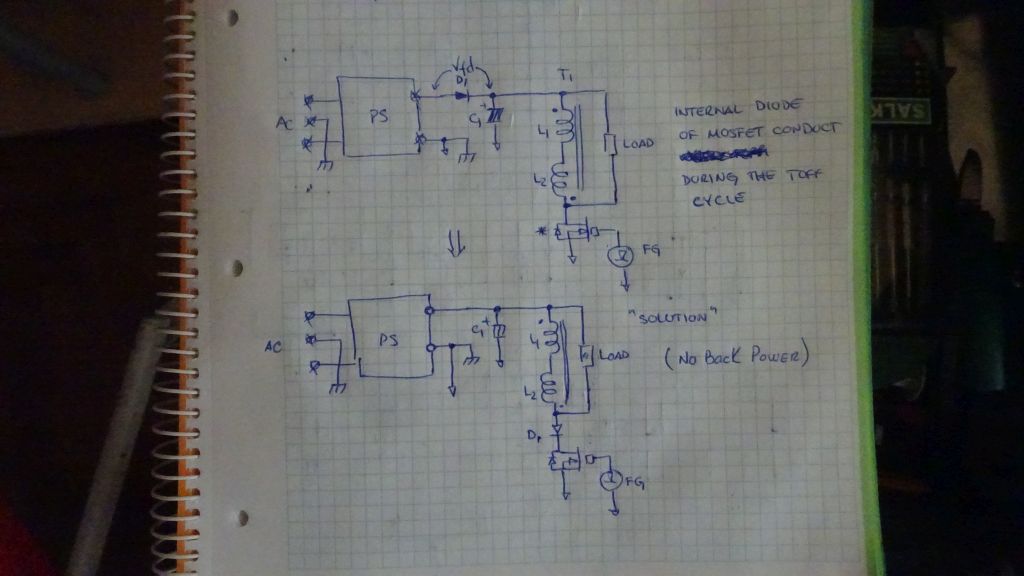 Vfd
D1
T1
AC
PS
C1
+
L1
L2
LOAD
*
FG
INTERNAL DIODE
OF MOSFET CONDUCT
DURING THE TOFF
CYCLE
AC
PS
C1
+
L1
L2
LOAD
D1
FG
"SOLUTION"
(NO BACK POWER)
SALK